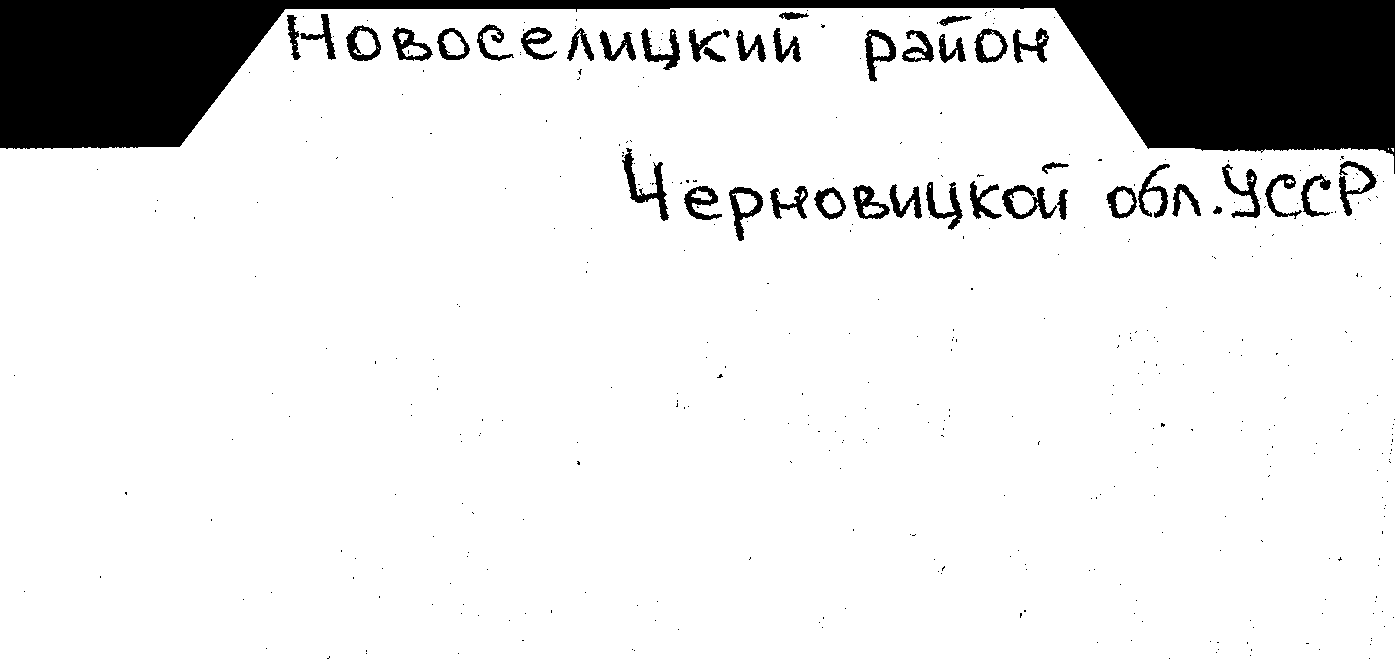 Новоселицкий район
Черновицкой обл. УССР